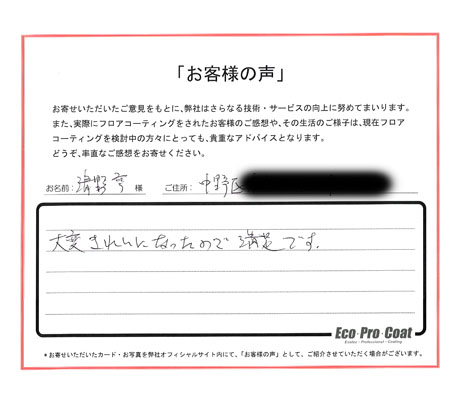 「お客様の声」
お寄せいただいたご意見をもとに、弊社はさらなる技術・サービスの向上に努めてまいります。
また、実際にフロアコーティングをされたお客様のご感想や、その生活のご様子は、現在フロア
コーティングを検討中の方々にとっても、貴重なアドバイスとなります。
どうぞ、率直なご感想をお寄せください。
お名前: 様 ご住所: 中野区
大変きれいになったので満足です。
Eco・Pro・Coat
*お寄せいただいたカード・お写真を弊社オフィシャルサイト内にて、「お客様の声」として、ご紹介させていただく場合がございます。